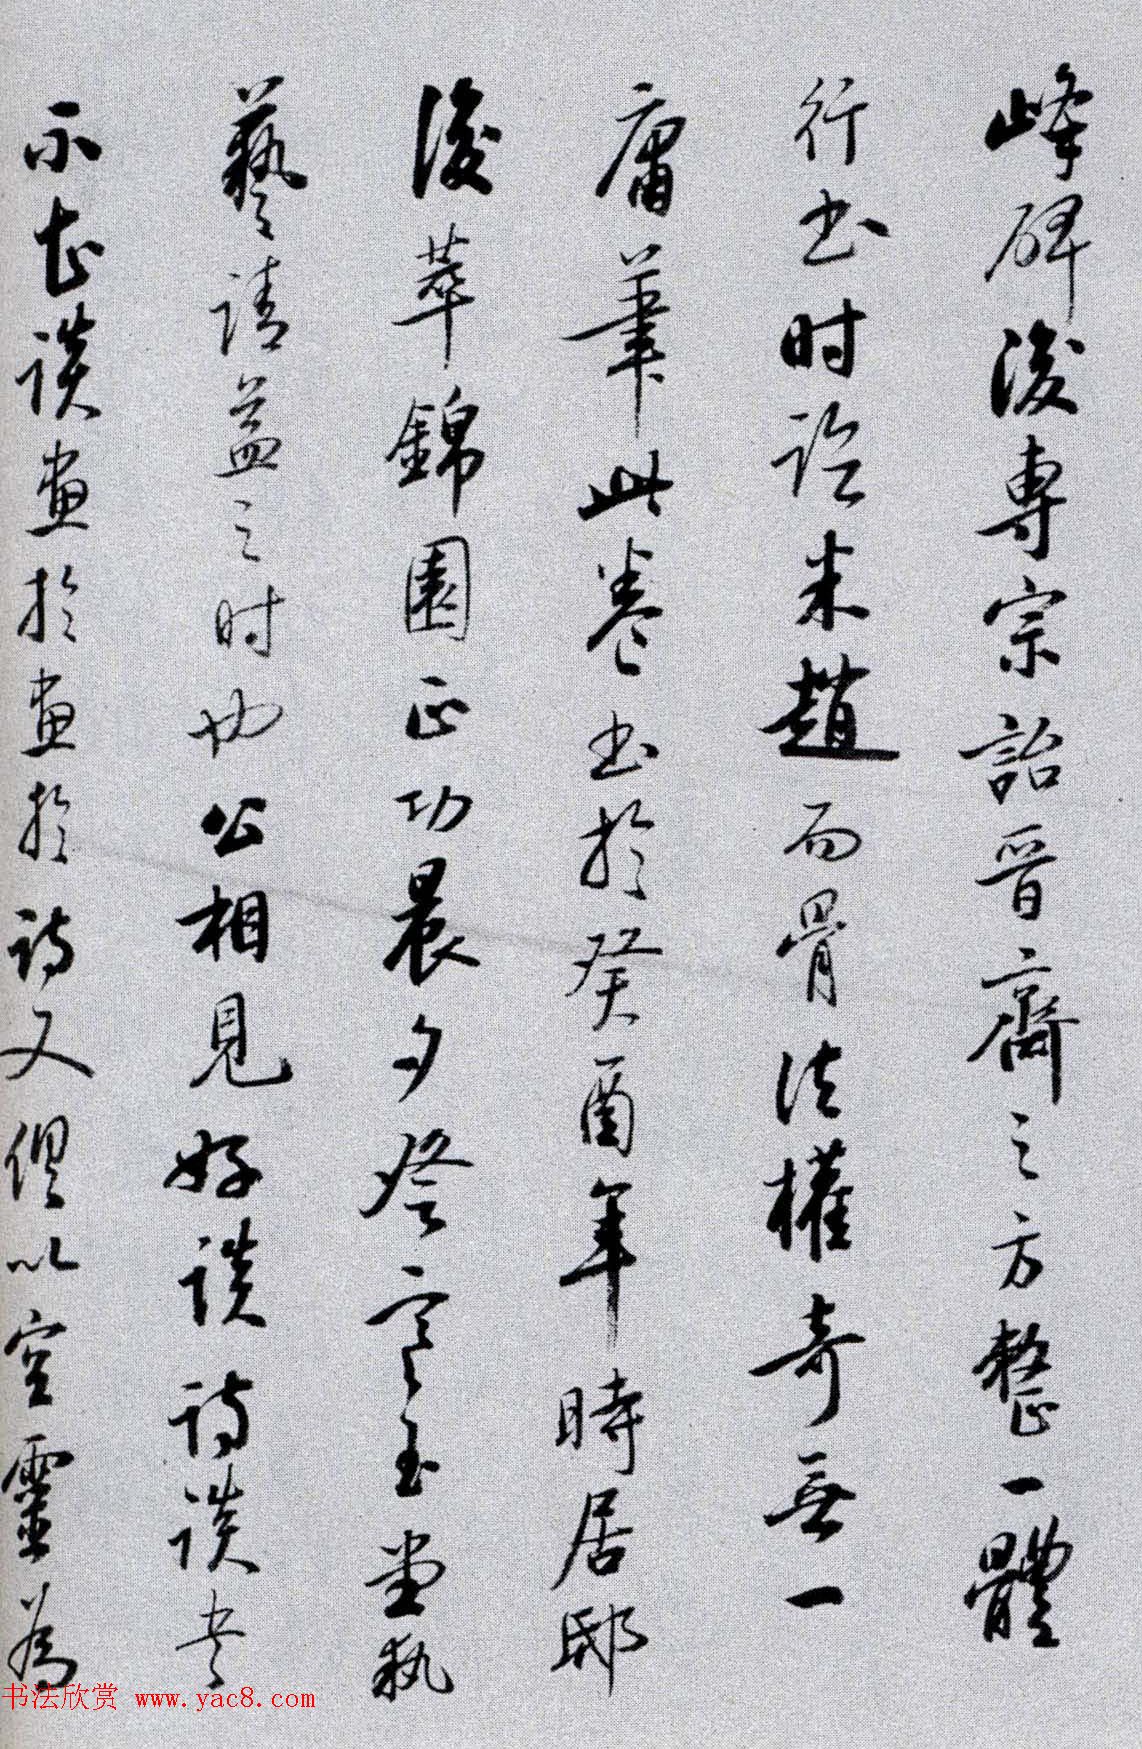 峰碑後專宗詒晉齋之方整一體
行书时診米趙而骨法權奇無一
庸筆此卷书於癸酉年時居邸
後萃錦園正功晨夕登寒玉堂執
藝請益之时也公相見好談詩談书
不甚談畫於畫於詩又俱以空靈為
书法欣赏 www.yac8.com